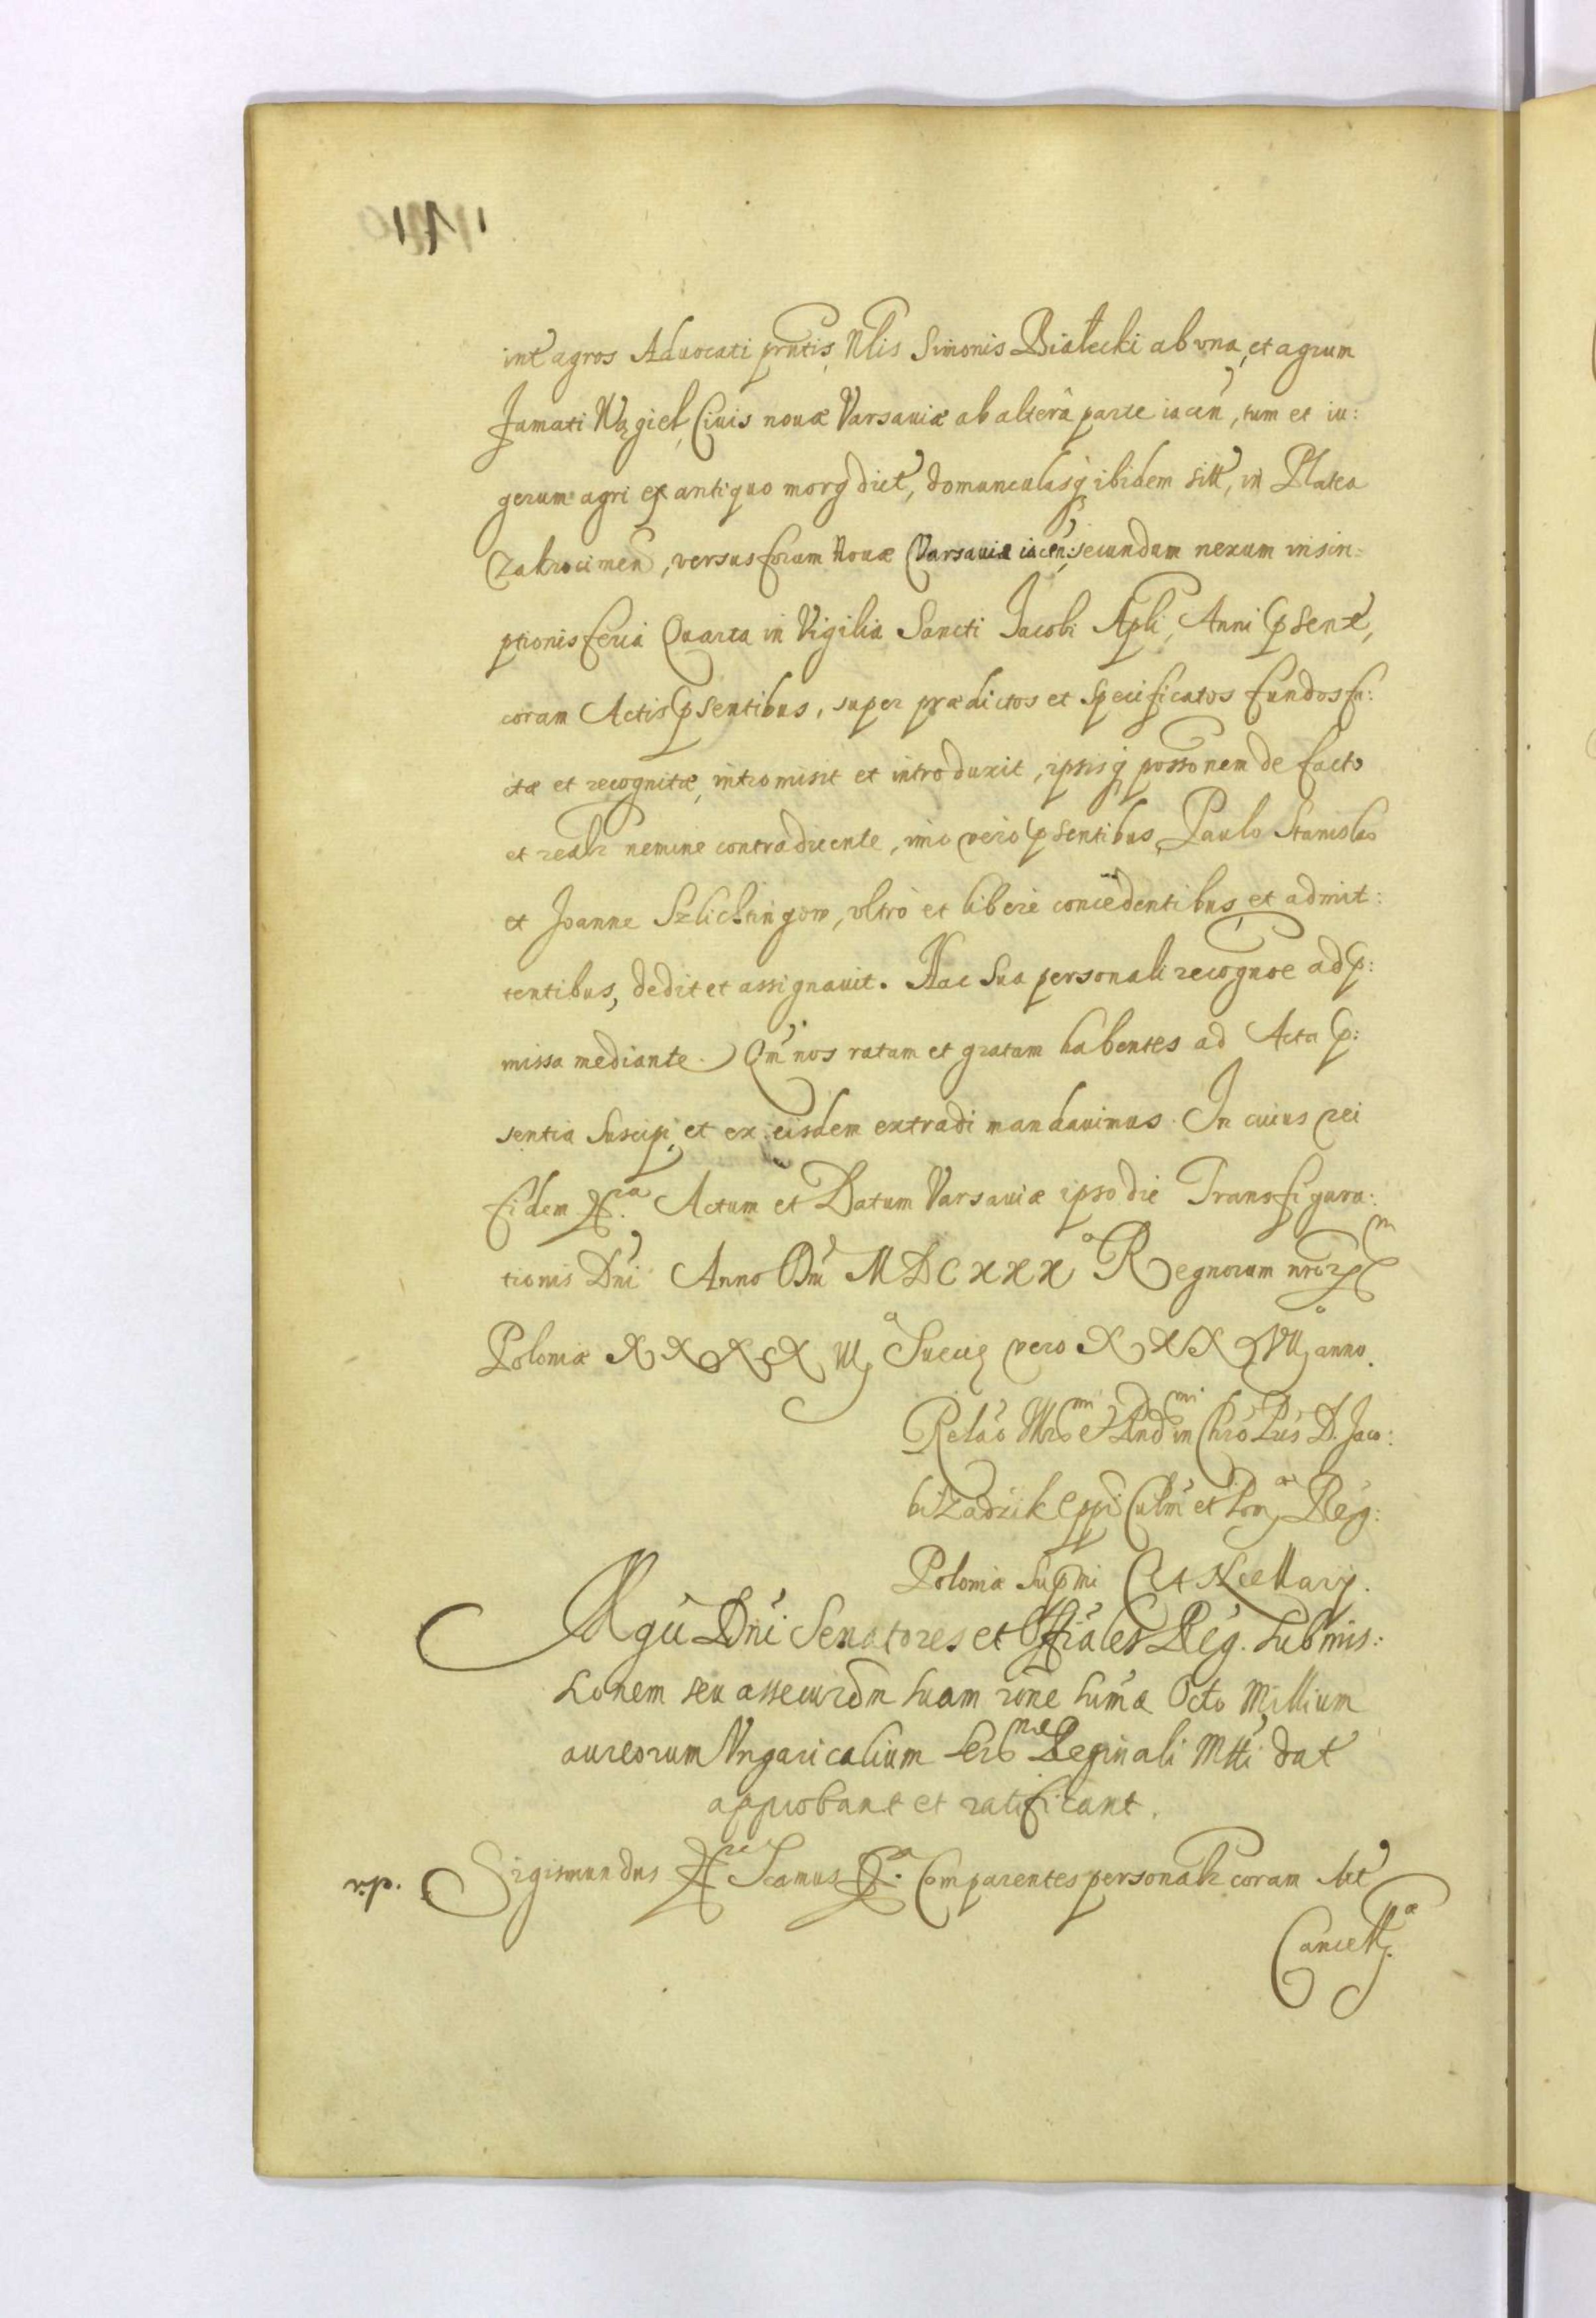 int agros Aduocati prntis, Nlis Simonis Białecki ab vna, et agrum
Famati Węgieł, Ciuis nouæ Varsauiæ ab alterâ parte iacen, tum et iu:
gerum agri ex antiquo morg dict, domunculasq ibidem sitt, in Platea
Zakrocimen, versus forum Nouæ Varsauiæ iacen: secundum nexum inscri=
ptionis feria Quarta in Vigilia Sancti Jacobi Apli, Anni psent,
coram Actis psentibus, super prædictos et specificatos fundos fa:
ctæ et recognitæ, intromisit et introduxit, ipsisq possonem de facto
et realr nemine contradicente, imo vero psentibus, Paulo Stanislao
et Joanne Szlichtingow, vltrò et liberè concedentibus, et admit:
tentibus, dedit et assignauit. Hac sua personali recognoe ad p:
missa mediante. Qm nos ratam et gratam habentes ad Acta p:
sentia suscipi, et ex eisdem extradi mandauimus. In cuius rei
fidem &ra. Actum et Datum Varsauiæ ipso die Transfigura:
tionis Dni Anno Dni MDCXXXo Regnorum nrorm
Poloniæ XXXXIIIo Sueciæ vero XXXVIIo anno.
Relao Illrmi et Rndmi in Chro Pris D. Jaco:
bi Zadzik Eppi Culm et Pomæ Reg:
Poloniæ Supmi CANcellarij.
Rgu Dni Senatores et Offiales Reg. submis:
sionem seu assecurõm suam rõne sumæ Octo Millium
aureorum Vngaricalium Sermæ Reginali Mtti dat
approbant et ratificant.
r.p. Sigismundus &ra Scamus &a. Comparentes personalr coram Act
Cancellæ.